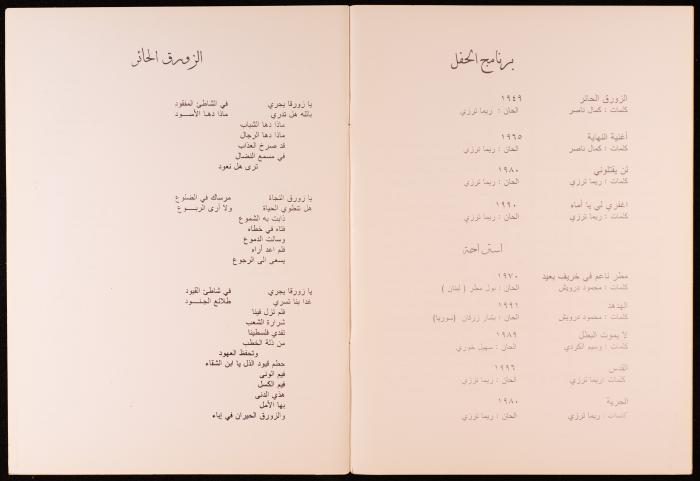 برنامج الحفل
الزورق الحائر ١٩٤٩
كلمات : كمال ناصر الحان : ريما ترزي
أغنية النهاية ١٩٦٥
كلمات : كمال ناصر الحان : ريما ترزي
لن يقتلوني ١٩٨٠
كلمات : ريما ترزي الحان : ريما ترزي
اغفري لي يا أماه ١٩٩٠
كلمات : ريما ترزي الحان : ريما ترزي
استراحة
مطر ناعم في خريف بعيد ١٩٧٠
كلمات : محمود درويش الحان : بول مطر ( لبنان )
الهدهد ١٩٩١
كلمات : محمود درويش الحان : بشار زرقان (سوريا)
لا يموت البطل ١٩٨٩
كلمات : وسيم الكردي الحان : سهيل خوري
القدس ١٩٩٦
كلمات : ريما ترزي الحان : ريما ترزي
الحرية ١٩٨٠
كلمات : ريما ترزي الحان : ريما ترزي
الزورق الحائر
يا زورقا يجري في الشاطئ المفقود
بالله هل تدري ماذا دهـا الأســـود
ماذا دها الشباب
ماذا دها الرجال
قد صرخ العذاب
في مسمع النضال
ترى هل نعود
يا زورق النجاة مرساك في الضلوع
هل تنطوي الحياة ولا أرى الربـــوع
ذابت به الشموع
فتاه في خطاه
وسالت الدموع
فلم اعد أراه
يسعى الى الرجوع
يا زورقا يجري في شاطئ القيود
غدا بنا تسري طلائع الجنـــود
فلم تزل فينا
شرارة الشعب
تفدي فلسطينا
من ذلة الخطب
وتحفظ العهود
حطم قيود الذل يا ابن الشقاء
فيم الونى
فيم الكسل
هذي الدنى
بها الأمل
والزورق الحيران في إباء